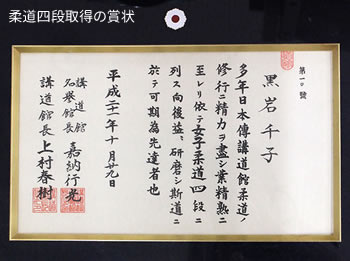 柔道四段取得の賞状
第一〇號
黒岩千子
多年日本傳講道館柔道ノ
修行ニ精力ヲ盡シ業精熟ニ
至レリ依テ女子柔道四段ニ
列ス向後益〻研磨シ斯道ニ
於テ可期為先達者也
平成二十一年十月廿九日
講道館
名誉館長 嘉納行光
講道館長 上村春樹